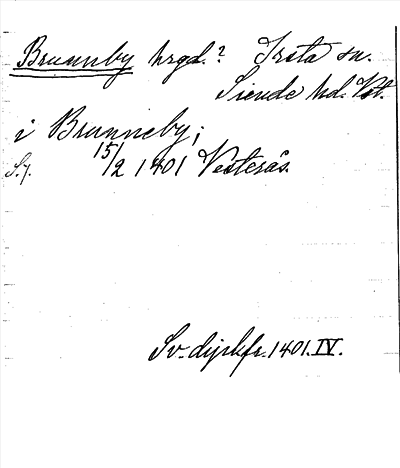 Brunnby hrgd.? Irsta sn.
Siende hd. Vst.
i Brunneby;
S.7. 15/2 1401 Vesterås.
Sv. dipl. fr. 1401. IV.